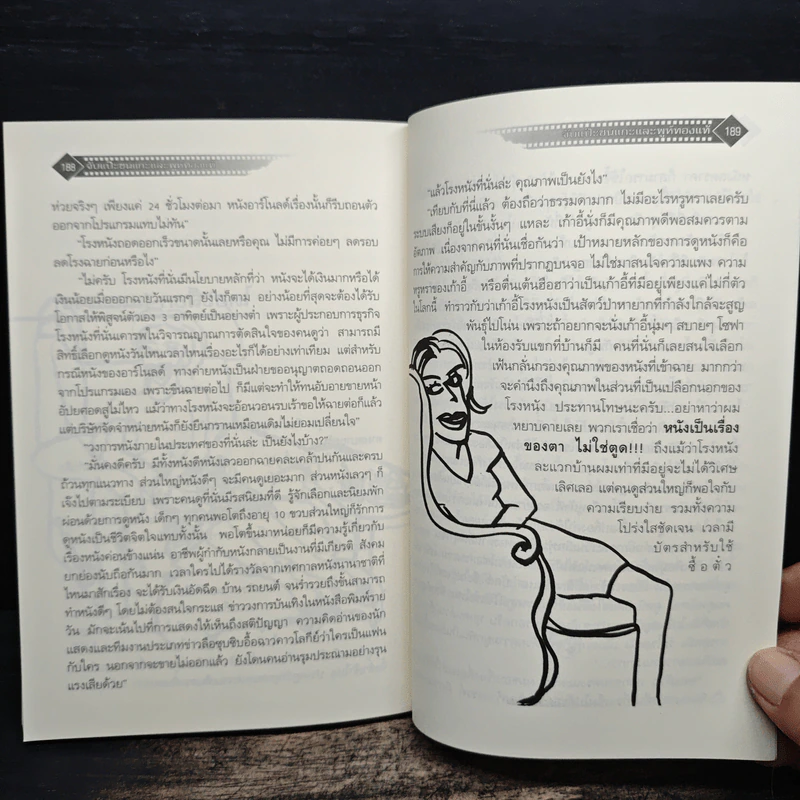 188
ห่วยจริงๆ เพียงแค่ 24 ชั่วโมงต่อมา หนังอาร์โนลด์เรื่องนั้นก็รีบถอนตัว
ออกจากโปรแกรมแทบไม่ทัน"
"โรงหนังถอดออกเร็วขนาดนั้นเลยหรือคุณ ไม่มีการค่อยๆ ลดรอบ
ลดโรงฉายก่อนหรือไง"
"ไม่ครับ โรงหนังที่นั่นมีนโยบายหลักที่ว่า หนังจะได้เงินมากหรือได้
เงินน้อยเมื่อออกฉายวันแรกๆ ยังไงก็ตาม อย่างน้อยที่สุดจะต้องได้รับ
โอกาสให้พิสูจน์ตัวเอง 3 อาทิตย์เป็นอย่างต่ำ เพราะผู้ประกอบการธุรกิจ
โรงหนังที่นั่นเคารพในวิจารณญาณการตัดสินใจของคนดูว่า สามารถมี
สิทธิ์เลือกดูหนังวันไหนเวลาไหนเรื่องอะไรก็ได้อย่างเท่าเทียม แต่สำหรับ
กรณีหนังของอาร์โนลด์ ทางค่ายหนังเป็นฝ่ายขออนุญาตถอดถอนออก
จากโปรแกรมเอง เพราะขืนฉายต่อไป ก็มีแต่จะทำให้ทนอับอายขายหน้า
อัปยศอดสูไม่ไหว แม้ว่าทางโรงหนังจะอ้อนวอนรบเร้าขอให้ฉายต่อก็แล้ว
แต่บริษัทจัดจำหน่ายหนังก็ยังยืนกรานเหมือนเดิมไม่ยอมเปลี่ยนใจ"
"วงการหนังภายในประเทศของที่นั่นล่ะ เป็นยังไงบ้าง?"
"มันคงดีครับ มีทั้งหนังดีหนังเลวออกฉายคละเคล้าปนกันและครบ
ถ้วนทุกแนวทาง ส่วนใหญ่หนังดีๆ จะมีคนดูเยอะมาก ส่วนหนังเลวๆ ก็
เจ๊งไปตามระเบียบ เพราะคนดูที่นั่นมีรสนิยมที่ดี รู้จักเลือกและนิยมพัก
ผ่อนด้วยการดูหนัง เด็กๆ ทุกคนพอโตถึงอายุ 10 ขวบส่วนใหญ่ก็รักการ
ดูหนังเป็นชีวิตจิตใจแทบทั้งนั้น พอโตขึ้นมาหน่อยก็มีความรู้เกี่ยวกับ
เรื่องหนังค่อนข้างแน่น อาชีพผู้กำกับหนังกลายเป็นงานที่มีเกียรติ สังคม
ยกย่องนับถือกันมาก เวลาใครไปได้รางวัลจากเทศกาลหนังนานาชาติที่
ไหนมาสักเรื่อง จะได้รับเงินอัดฉีด บ้าน รถยนต์ จนร่ำรวยถึงขั้นสามารถ
ทำหนังดีๆ โดยไม่ต้องสนใจกระแส ข่าววงการบันเทิงในหนังสือพิมพ์ราย
วัน มักจะเน้นไปที่การแสดงให้เห็นถึงสติปัญญา ความคิดอ่านของนัก
แสดงและทีมงานประเภทข่าวลือซุบซิบอื้อฉาวคาวโลกีย์ว่าใครเป็นแฟน
กับใคร นอกจากจะขายไม่ออกแล้ว ยังโดนคนอ่านรุมประณามอย่างรุน
แรงเสียด้วย"
189
"แล้วโรงหนังที่นั่นล่ะ คุณภาพเป็นยังไง"
"เทียบกับที่นี่แล้ว ต้องถือว่าธรรมดามาก ไม่มีอะไรหรูหราเลยครับ
ระบบเสียงก็อยู่ในขั้นงั้นๆ แหละ เก้าอี้นั่งก็มีคุณภาพดีพอสมควรตาม
อัตภาพ เนื่องจากคนที่นั่นเชื่อกันว่า เป้าหมายหลักของการดูหนังก็คือ
การให้ความสำคัญกับภาพที่ปรากฏบนจอ ไม่ใช่มาสนใจความแพง ความ
หรูหราของเก้าอี้ หรือตื่นเต้นฮือฮาว่าเป็นเก้าอี้ที่มีอยู่เพียงแค่ไม่กี่ตัว
ในโลกนี้ ทำราวกับว่าเก้าอี้โรงหนังเป็นสัตว์ป่าหายากที่กำลังใกล้จะสูญ
พันธุ์ไปโน่น เพราะถ้าอยากจะนั่งเก้าอี้นุ่มๆ สบายๆ โซฟา
ในห้องรับแขกที่บ้านก็มี คนที่นั่นก็เลยสนใจเลือก
เฟ้นกลั่นกรองคุณภาพของหนังที่เข้าฉาย มากกว่า
จะคำนึงถึงคุณภาพในส่วนที่เป็นเปลือกนอกของ
โรงหนัง ประทานโทษนะครับ...อย่าหาว่าผม
หยาบคายเลย พวกเราเชื่อว่า หนังเป็นเรื่อง
ของตา ไม่ใช่ตูด!!! ถึงแม้ว่าโรงหนัง
ละแวกบ้านผมเท่าที่มีอยู่จะไม่ได้วิเศษ
เลิศเลอ แต่คนดูส่วนใหญ่ก็พอใจกับ
ความเรียบง่าย รวมทั้งความ
โปร่งใสชัดเจน เวลามี
บัตรสำหรับใช้
ซื้อตั๋ว